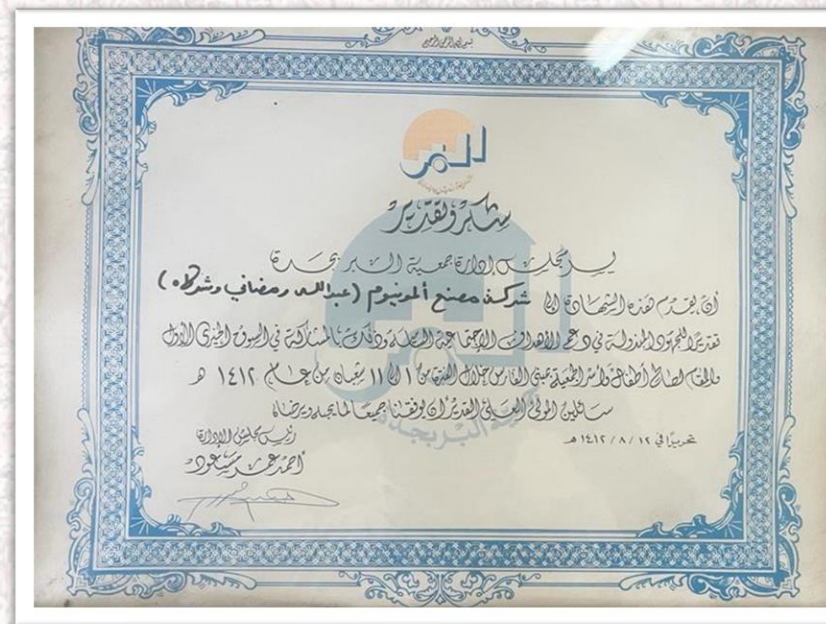 بسم الله الرحمن الرحيم
البر
شكر وتقدير
يسر مجلس إدارة جمعية البر بجدة
أن يقدم هذه الشهادة إلى شركة مصنع ألمونيوم (عبدالله رمضاني وشركاه)
تقديراً للجهود المبذولة في دعم الأهداف الاجتماعية النبيلة وذلك بالمشاركة في السوق الخيري الأول
والمقام لصالح أطفال وأسر الجمعية بمبنى الفارس خلال الفترة من ١ إلى ١١ شعبان من عام ١٤١٢ هـ
سائلين المولى العلي القدير أن يوفقنا جميعاً لما يحبه ويرضاه
تحريراً في ١٢ / ٨ / ١٤١٢ هـ
رئيس مجلس الإدارة
أحمد عمر مسعود
البر
جمعية البر بجدة